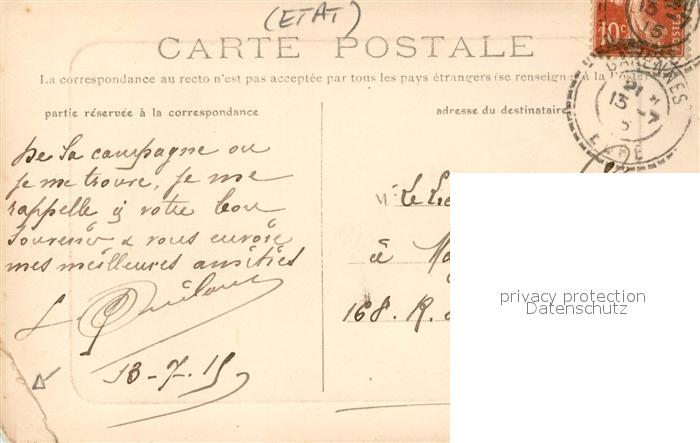 (ETAT)
CARTE POSTALE
La correspondance au recto n'est pas acceptée par tous les pays étrangers (se renseigner à la Poste)
partie réservée à la correspondance
adresse du destinataire
10c
POSTES
GARENNES
21
13 -7
15
EURE
De la campagne ou
je me trouve, je me
rappelle à votre bon
Souvenir & vous envoie
mes meilleures amitiés
13-7-15
M
à
168. R.
privacy protection
Datenschutz